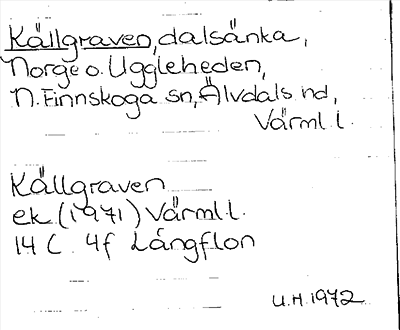 Källgraven, dalsänka,
Norge o. Uggleheden,
N. Finnskoga sn, Älvdals hd,
Värml. l.
Källgraven
ek. (1971) Värml. l.
14 C. 4f Långflon
U.H. 1972